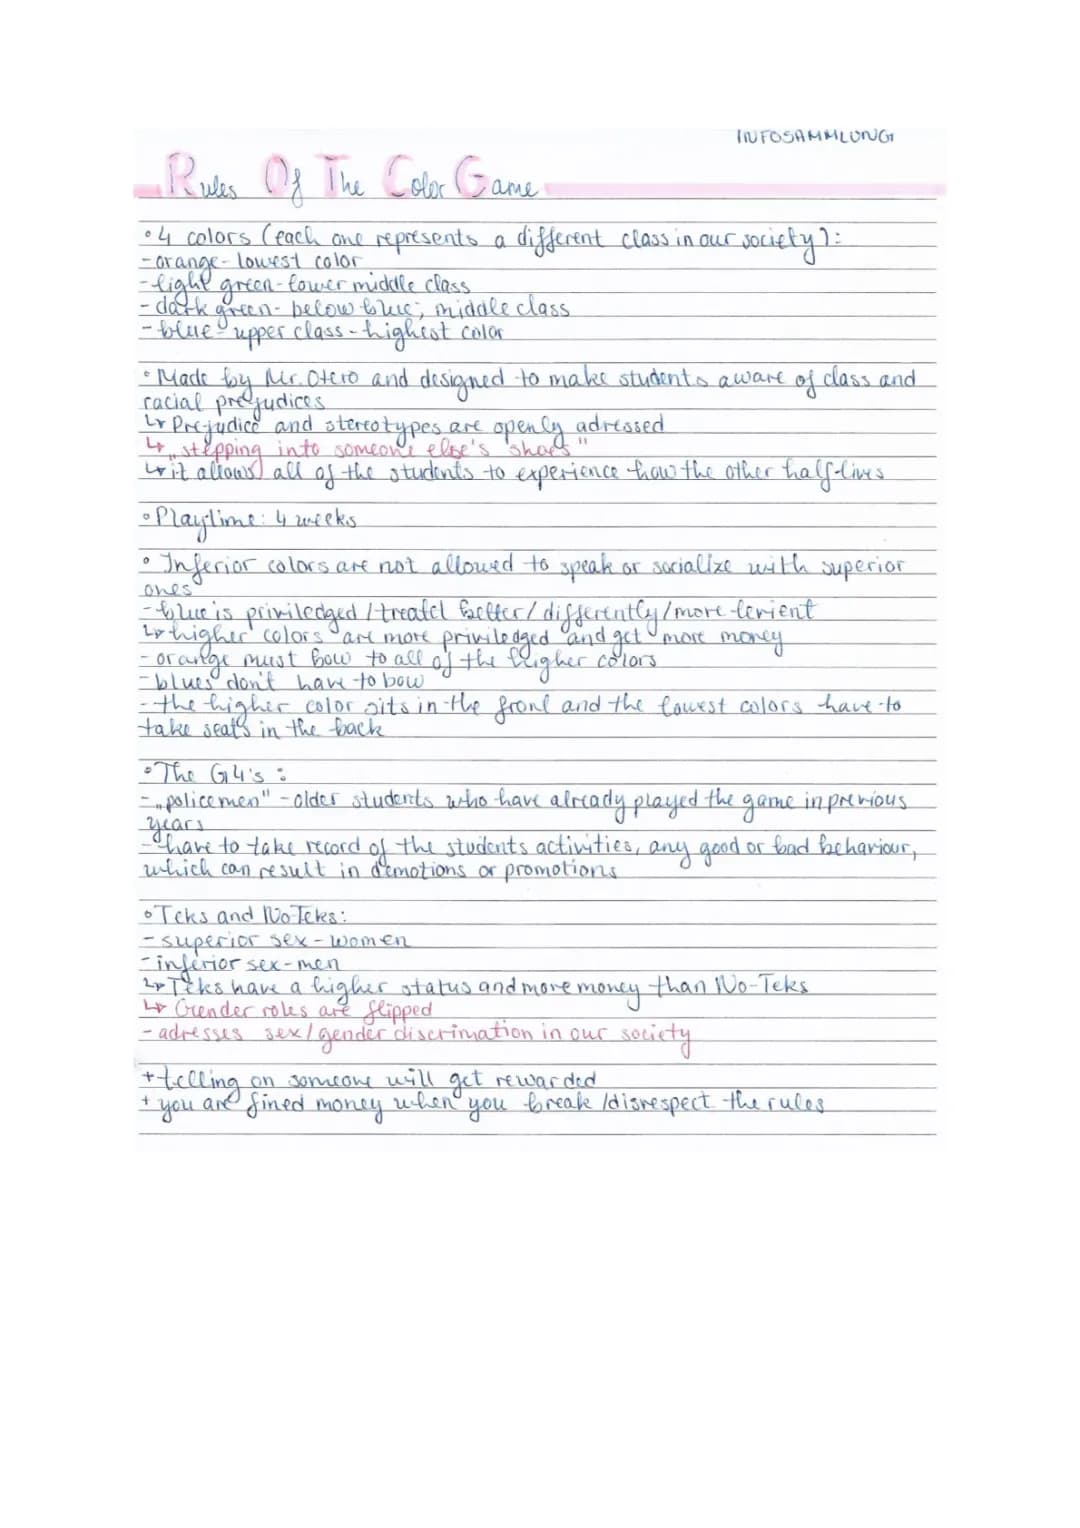 INFOSAMMLUNG
Rules Of The Color Game
• 4 colors (each one represents a different class in our society):
- orange - lowest color
- light green - lower middle class
- dark green - below blue; middle class
- blue - upper class - highest color
• Made by Mr. Otero and designed to make students aware of class and
racial prejudices
↳ Prejudice and stereotypes are openly adressed
↳ „stepping into someone else's shoes"
↳ it allows all of the students to experience how the other half-lives
• Playtime: 4 weeks
• Inferior colors are not allowed to speak or socialize with superior
ones
- blue is priviledged / treatet better / differently / more lenient
↳ higher colors are more priviledged and get more money
- orange must bow to all of the higher colors
- blues don't have to bow
- the higher color sits in the front and the lowest colors have to
take seats in the back
• The G4's:
- „policemen" - older students who have already played the game in previous
years
- have to take record of the students activities, any good or bad behaviour,
which can result in demotions or promotions
• Teks and No-Teks:
- superior sex - women
- inferior sex - men
↳ Teks have a higher status and more money than No-Teks
↳ Gender roles are flipped
- adresses sex / gender discrimation in our society
+ telling on someone will get rewarded
+ you are fined money when you break / disrespect the rules